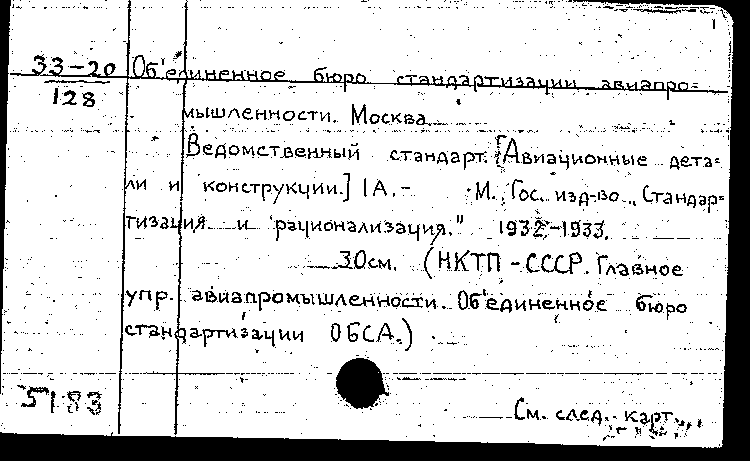 1
33-20 Об'единенное бюро стандартизации авиапро=
128
мышленности. Москва
Ведомственный стандарт. [Авиационные дета=
ли и конструкции.] 1А.- М., Гос. изд-во „Стандар=
тизация и рационализация." 1932-1933.
30см. (НКТП-СССР. Главное
упр. авиапромышленности. Об'единенное бюро
стандартизации ОБСА.)
5183
См. след. карт.